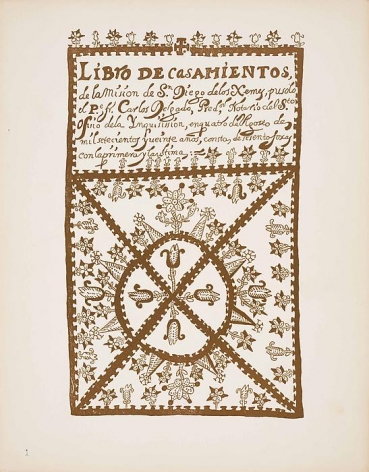 LIBRO DE CASAMIENTOS,
de la Mision de S. Diego de los Xemes, pusolo
el Pe. fr. Carlos Delgado, Predr. Notario del Sto
Ofino de la Ynquisision, en quatro de Agosto de
mil setecientos y veinte años, consta de sesenta foxas
con la primera y la ultima
1